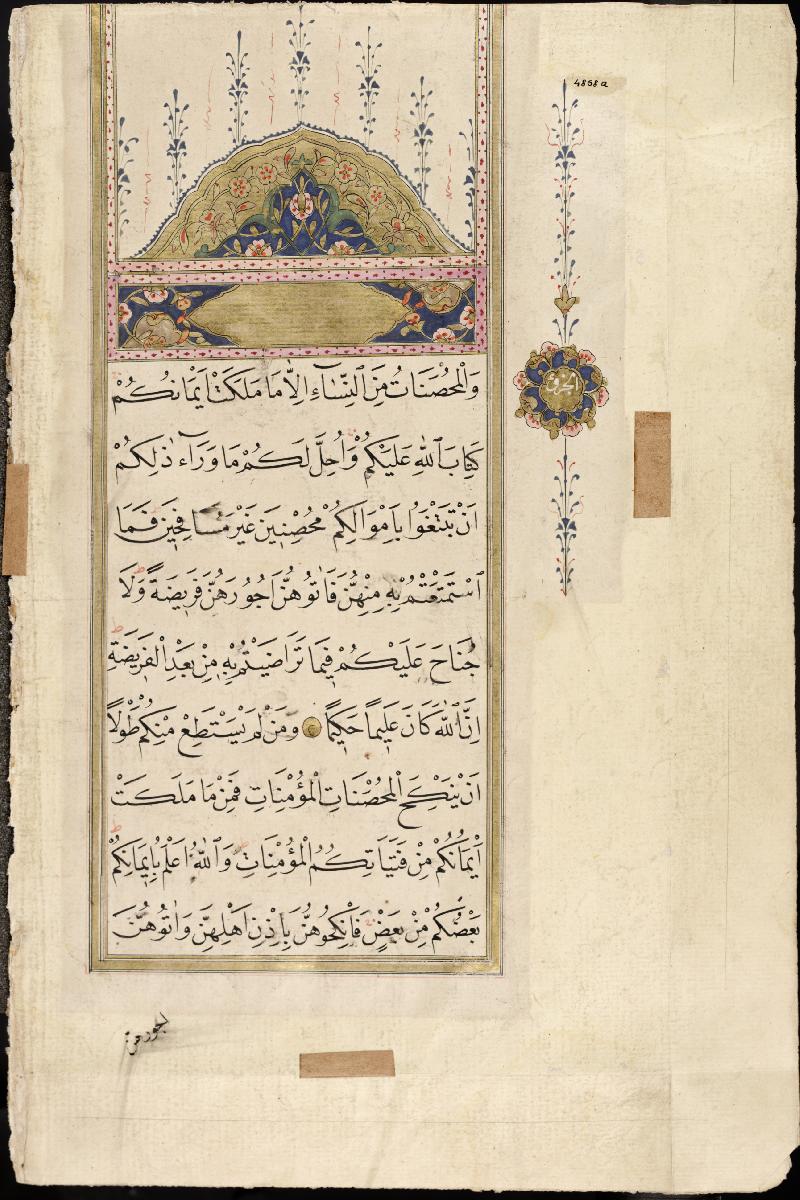 4858a
الجزؤ
وَالْمُحْصَنَاتُ مِنَ النِّسَآءِ اِلَّا مَا مَلَكَتْ اَيْمَانُكُمْ
كِتَابَ اللّٰهِ عَلَيْكُمْ وَاُحِلَّ لَكُمْ مَا وَرَآءَ ذٰلِكُمْ
اَنْ تَبْتَغُوا بِاَمْوَالِكُمْ مُحْصِنِينَ غَيْرَ مُسَافِحِينَ فَمَا
اسْتَمْتَعْتُمْ بِهِ مِنْهُنَّ فَاٰتُوهُنَّ اُجُورَهُنَّ فَرِيضَةً وَلَا
جُنَاحَ عَلَيْكُمْ فِيمَا تَرَاضَيْتُمْ بِهِ مِنْ بَعْدِ الْفَرِيضَةِ
اِنَّ اللّٰهَ كَانَ عَلِيمًا حَكِيمًا وَمَنْ لَمْ يَسْتَطِعْ مِنْكُمْ طَوْلًا
اَنْ يَنْكِحَ الْمُحْصَنَاتِ الْمُؤْمِنَاتِ فَمِنْ مَا مَلَكَتْ
اَيْمَانُكُمْ مِنْ فَتَيَاتِكُمُ الْمُؤْمِنَاتِ وَاللّٰهُ اَعْلَمُ بِاِيمَانِكُمْ
بَعْضُكُمْ مِنْ بَعْضٍ فَانْكِحُوهُنَّ بِاِذْنِ اَهْلِهِنَّ وَاٰتُوهُنَّ
اجورهن